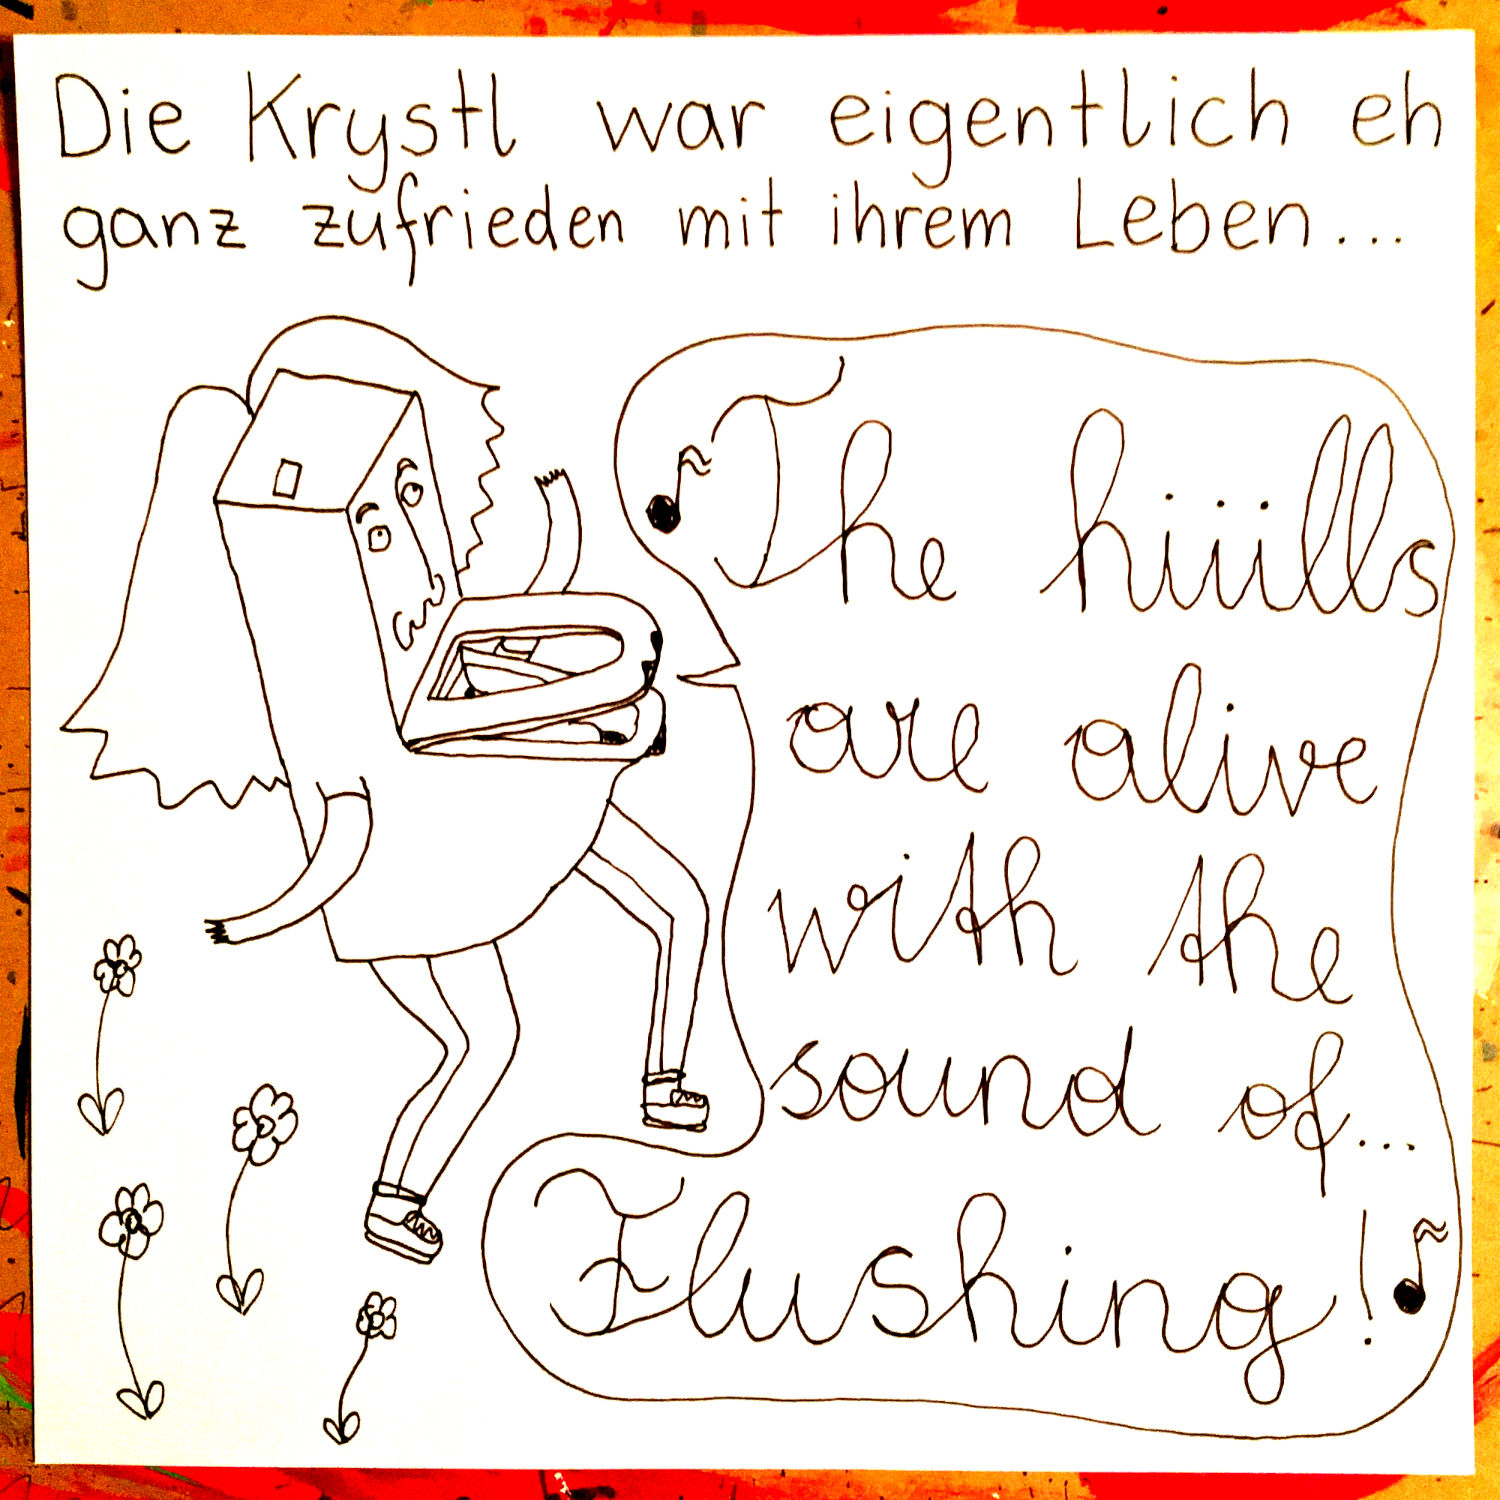 Die Krystl war eigentlich eh
ganz zufrieden mit ihrem Leben...
The hiiills
are alive
with the
sound of...
Flushing!